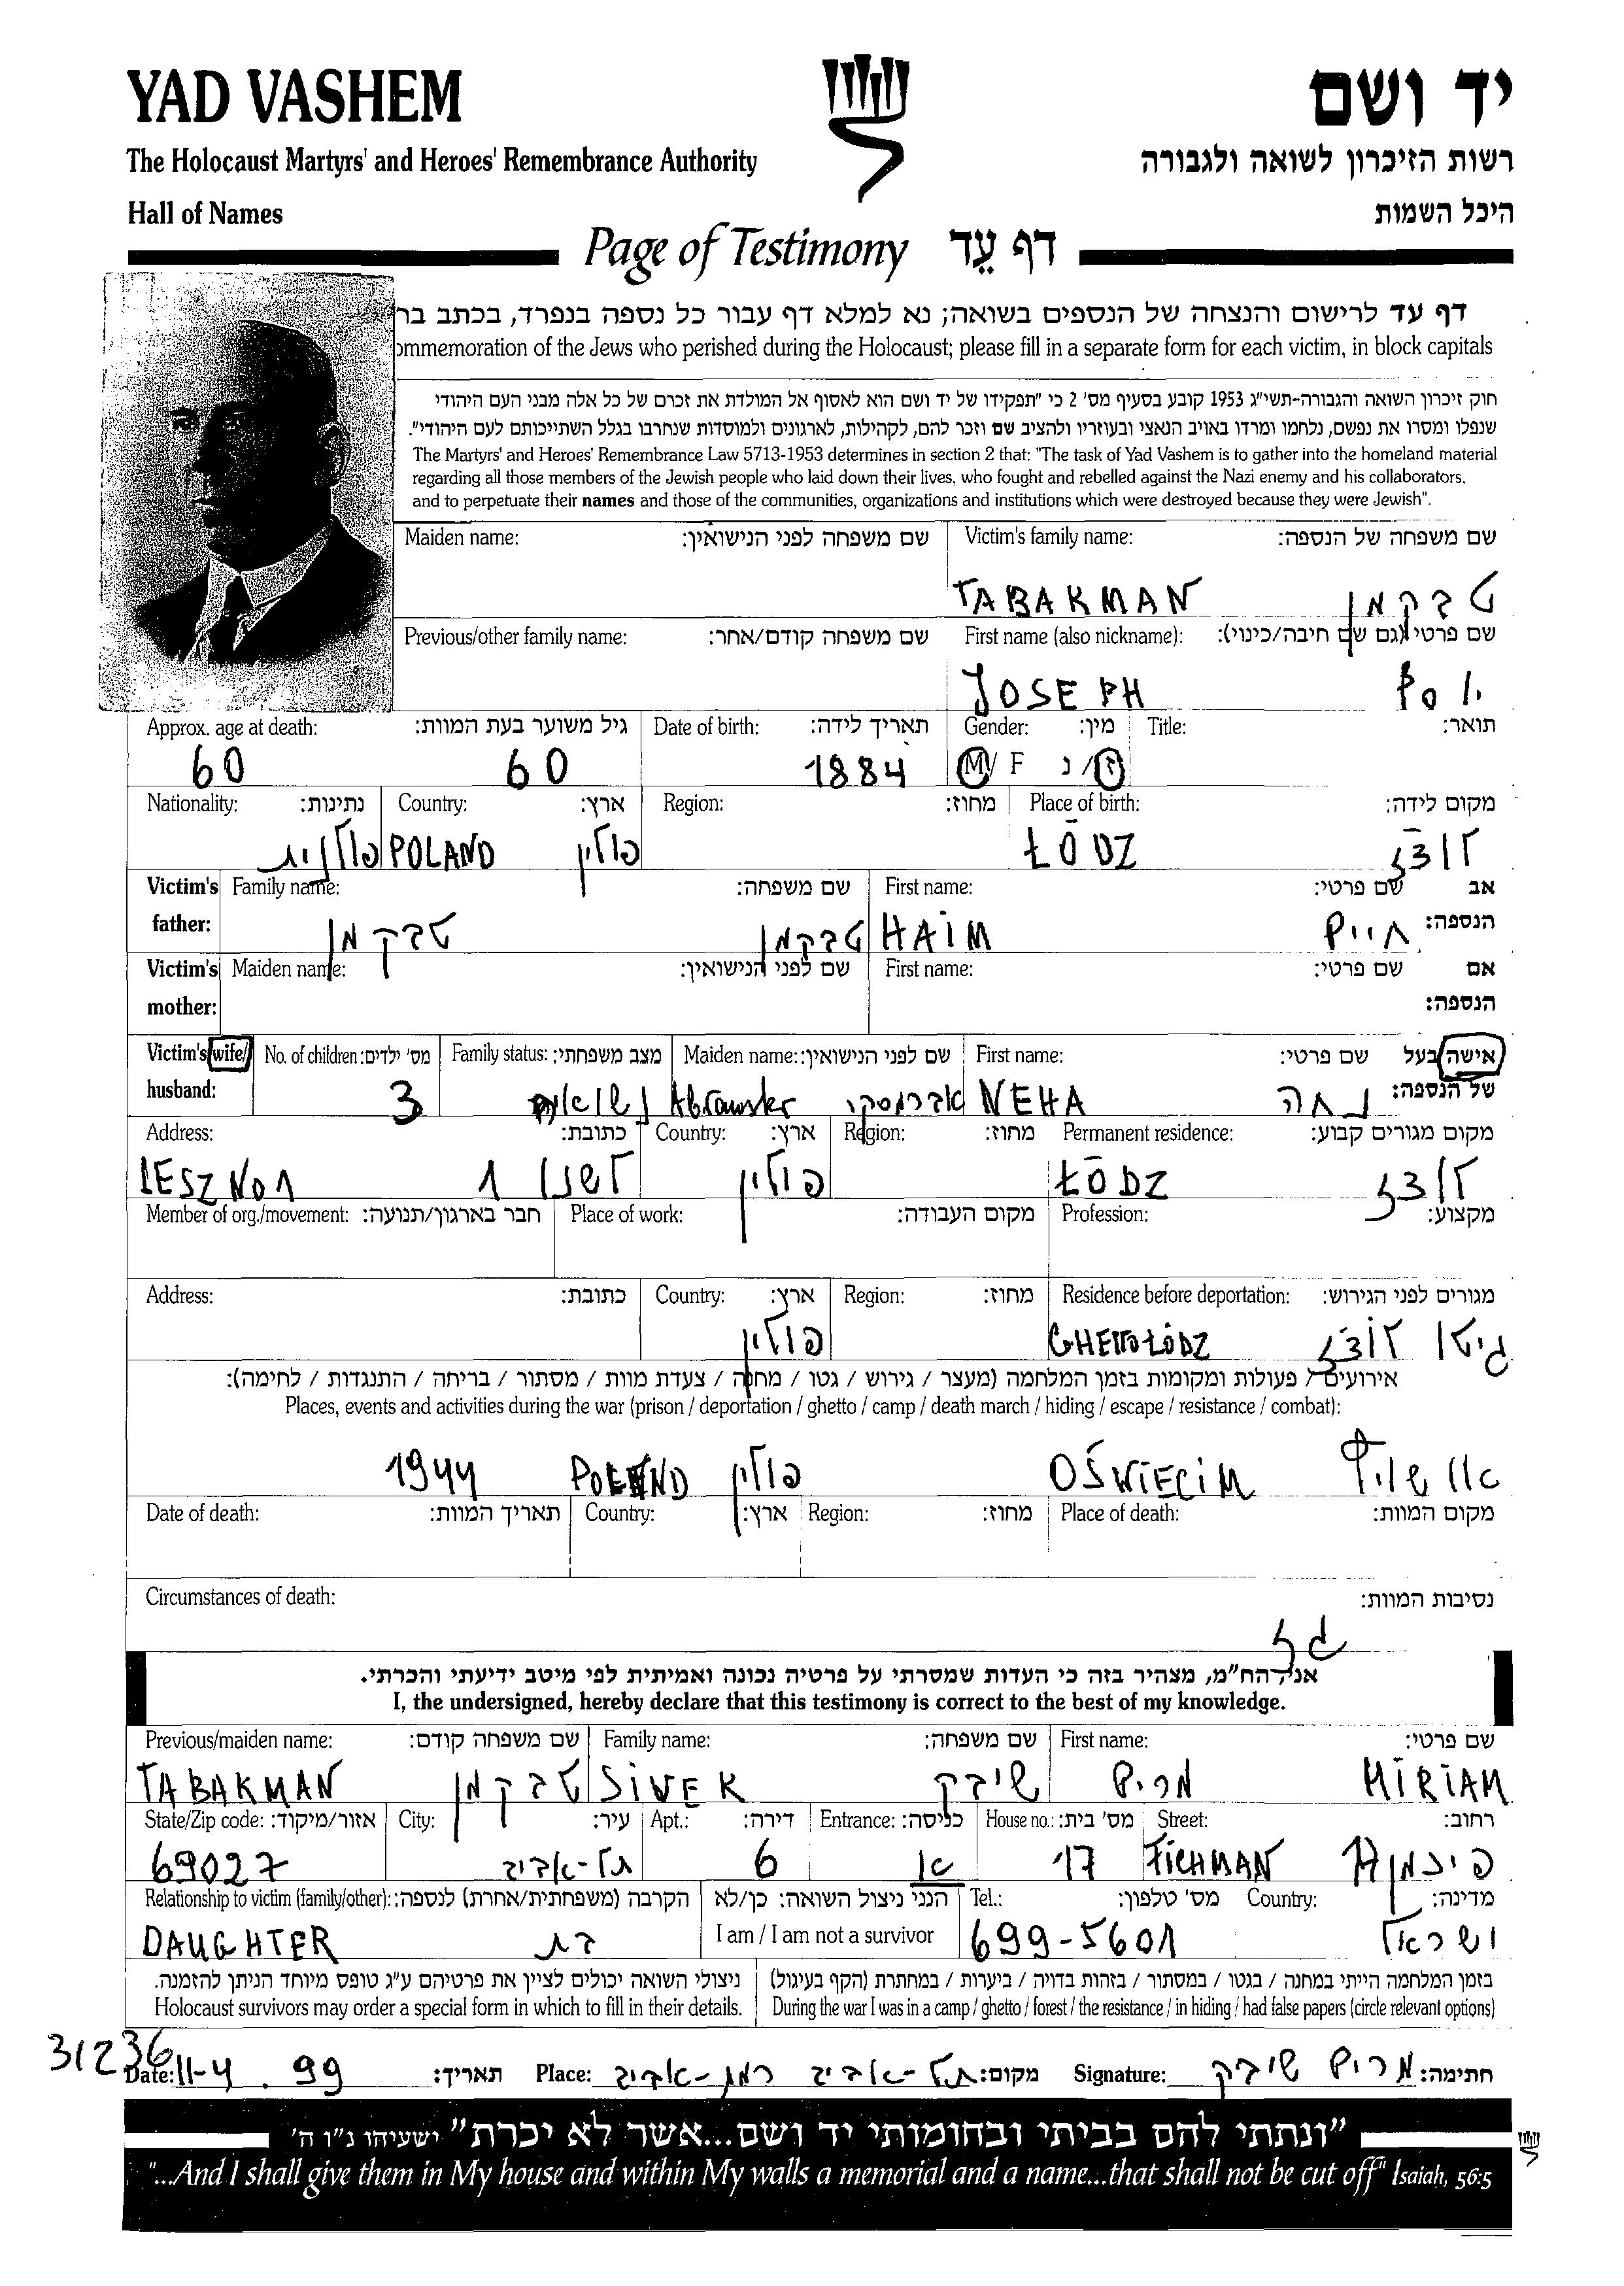 YAD VASHEM יד ושם
The Holocaust Martyrs' and Heroes' Remembrance Authority רשות הזיכרון לשואה ולגבורה
Hall of Names היכל השמות
Page of Testimony דף עֵד
דף עד לרישום והנצחה של הנספים בשואה; נא למלא דף עבור כל נספה בנפרד, בכתב בר
ommemoration of the Jews who perished during the Holocaust; please fill in a separate form for each victim, in block capitals
חוק זיכרון השואה והגבורה-תשי"ג 1953 קובע בסעיף מס' 2 כי "תפקידו של יד ושם הוא לאסוף אל המולדת את זכרם של כל אלה מבני העם היהודי
שנפלו ומסרו את נפשם, נלחמו ומרדו באויב הנאצי ובעוזריו ולהציב שם וזכר להם, לקהילות, לארגונים ולמוסדות שנחרבו בגלל השתייכותם לעם היהודי".
The Martyrs' and Heroes' Remembrance Law 5713-1953 determines in section 2 that: "The task of Yad Vashem is to gather into the homeland material
regarding all those members of the Jewish people who laid down their lives, who fought and rebelled against the Nazi enemy and his collaborators,
and to perpetuate their names and those of the communities, organizations and institutions which were destroyed because they were Jewish".
Maiden name: שם משפחה לפני הנישואין: Victim's family name: שם משפחה של הנספה:
TABAKMAN טבקמן
Previous/other family name: שם משפחה קודם/אחר: First name (also nickname): שם פרטי (גם שם חיבה/כינוי):
JOSEPH יוסף
Approx. age at death: גיל משוער בעת המוות: Date of birth: תאריך לידה: Gender: מין: Title: תואר:
60 60 1884 M/ F ז/ נ
Nationality: נתינות: Country: ארץ: Region: מחוז: Place of birth: מקום לידה:
פולנית POLAND פולין ŁÓDZ לודז'
Victim's Family name: שם משפחה: First name: שם פרטי: אב
father: טבקמן טבקמן HAIM חיים הנספה:
Victim's Maiden name: שם לפני הנישואין: First name: שם פרטי: אם
mother: הנספה:
Victim's wife/ No. of children: מס' ילדים: Family status: מצב משפחתי: Maiden name: שם לפני הנישואין: First name: שם פרטי: אישה/בעל
husband: 3 נשוי Abramska אברמסקי NEHA נחה של הנספה:
Address: כתובת: Country: ארץ: Region: מחוז: Permanent residence: מקום מגורים קבוע:
LESZNO 1 לשנו 1 פולין ŁÓDZ לודז'
Member of org./movement: חבר בארגון/תנועה: Place of work: מקום העבודה: Profession: מקצוע:
Address: כתובת: Country: ארץ: Region: מחוז: Residence before deportation: מגורים לפני הגירוש:
פולין GHETTO ŁÓDZ גיטו לודז'
אירועים / פעולות ומקומות בזמן המלחמה (מעצר / גירוש / גטו / מחנה / צעדת מוות / מסתור / בריחה / התנגדות / לחימה):
Places, events and activities during the war (prison / deportation / ghetto / camp / death march / hiding / escape / resistance / combat):
1944 POLAND פולין OŚWIECIM אושוויץ
Date of death: תאריך המוות: Country: ארץ: Region: מחוז: Place of death: מקום המוות:
Circumstances of death: נסיבות המוות:
גז
אני, הח"מ, מצהיר בזה כי העדות שמסרתי על פרטיה נכונה ואמיתית לפי מיטב ידיעתי והכרתי.
I, the undersigned, hereby declare that this testimony is correct to the best of my knowledge.
Previous/maiden name: שם משפחה קודם: Family name: שם משפחה: First name: שם פרטי:
TABAKMAN טבקמן SIVEK שיבק מרים MIRIAM
State/Zip code: אזור/מיקוד: City: עיר: Apt.: דירה: Entrance: כניסה: House no.: מס' בית: Street: רחוב:
69027 תל-אביב 6 א 17 FICHMAN פיכמן 17
Relationship to victim (family/other): הקרבה (משפחתית/אחרת) לנספה: הנני ניצול השואה: כן/לא Tel.: מס' טלפון: Country: מדינה:
DAUGHTER בת I am / I am not a survivor 699-5601 ישראל
ניצולי השואה יכולים לציין את פרטיהם ע"ג טופס מיוחד הניתן להזמנה. בזמן המלחמה הייתי במחנה / בגטו / במסתור / בזהות בדויה / ביערות / במחתרת (הקף בעיגול)
Holocaust survivors may order a special form in which to fill in their details. During the war I was in a camp / ghetto / forest / the resistance / in hiding / had false papers (circle relevant options)
31236
Date: 11-4. 99 תאריך: Place: תל-אביב רמת-אביב מקום: Signature: מרים שיבק חתימה:
"ונתתי להם בביתי ובחומותי יד ושם...אשר לא יכרת" ישעיהו נ"ו ה'
"...And I shall give them in My house and within My walls a memorial and a name...that shall not be cut off" Isaiah, 56:5